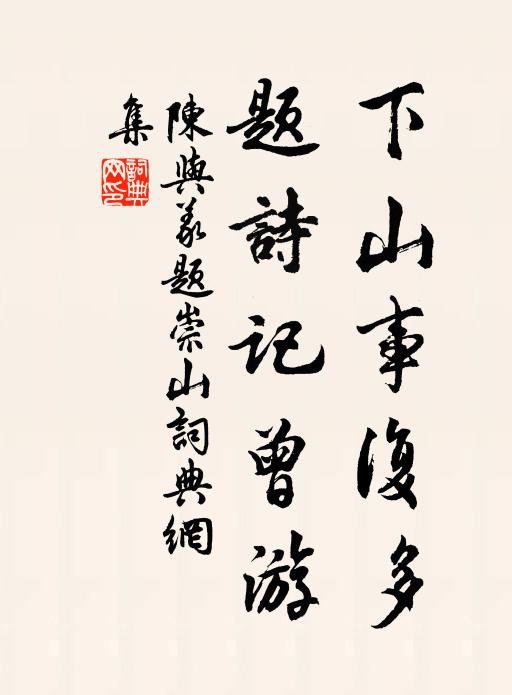 下山事復多
題詩記曾游
陳與義題崇山詞典網
集
詞典网印